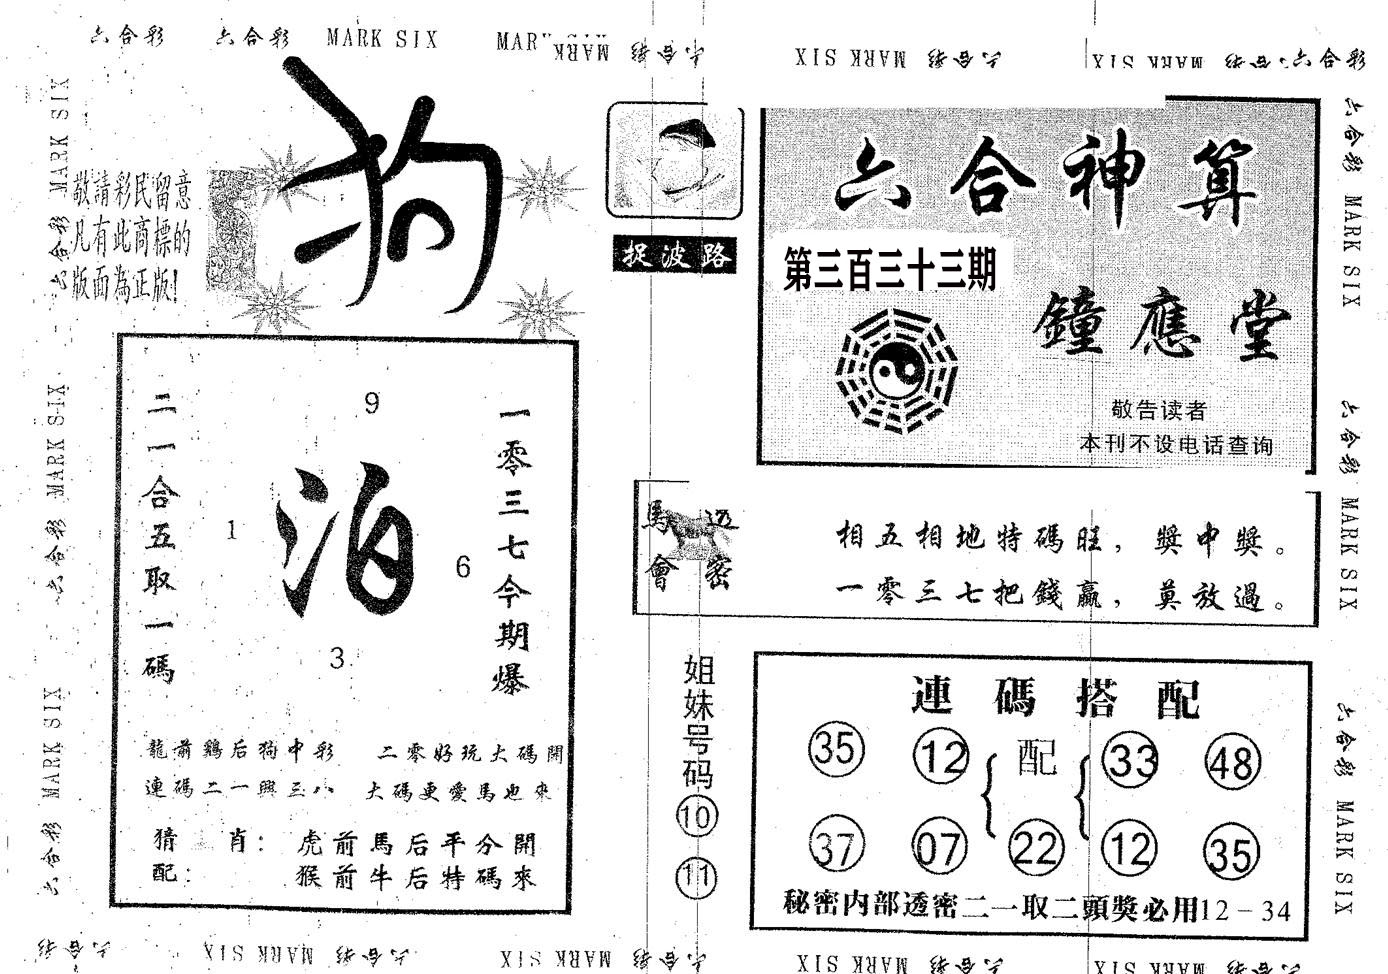 六合彩 六合彩 MARK SIX MARK SIX 六合彩
MARK SIX 六合彩 MARK SIX 六合彩 六合彩
六合彩 MARK SIX 六合彩 MARK SIX 六合彩 MARK SIX
敬請彩民留意
凡有此商標的
版面為正版!
狗
捉波路
六合神算
第三百三十三期
鐘應堂
敬告读者
本刊不设电话查询
二一合五取一碼
9
1
泊
6
3
一零三七今期爆
龍前鷄后狗中彩 二零好玩大碼開
連碼二一興三八 大碼更愛馬也來
猜肖: 虎前馬后平分開
配: 猴前牛后特碼來
馬會
透密
相五相地特碼旺,獎中獎。
一零三七把錢贏,莫放過。
姐妹号码
10
11
連碼搭配
35 12 配 33 48
37 07 22 12 35
秘密内部透密二一取二頭獎必用12-34
六合彩 MARK SIX 六合彩 MARK SIX 六合彩 MARK SIX
六合彩 MARK SIX 六合彩 MARK SIX 六合彩 MARK SIX 六合彩 MARK SIX 六合彩